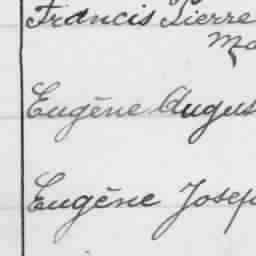 Francis Pierre
Ma
Eugène Augus
Eugène Josep